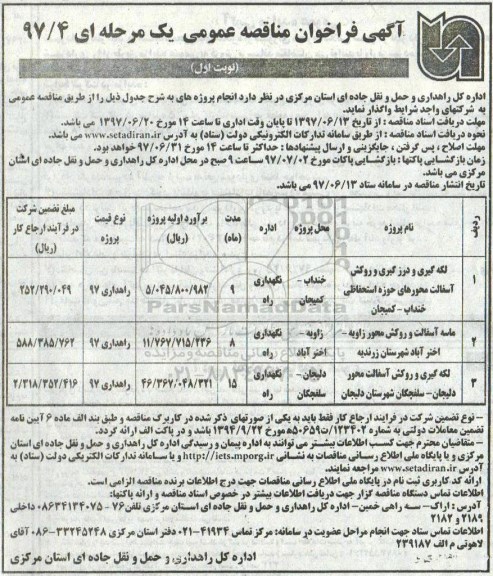 آگهی فراخوان مناقصه عمومی یک مرحله ای ۹۷/۴
(نوبت اول)
اداره کل راهداری و حمل و نقل جاده ای استان مرکزی در نظر دارد انجام پروژه های به شرح جدول ذیل را از طریق مناقصه عمومی
به شرکتهای واجد شرایط واگذار نماید.
مهلت دریافت اسناد مناقصه : از تاریخ ۱۳۹۷/۰۶/۱۳ تا پایان وقت اداری تا ساعت ۱۴ مورخ ۱۳۹۷/۰۶/۲۰ می باشد.
نحوه دریافت اسناد مناقصه : از طریق سامانه تدارکات الکترونیکی دولت (ستاد) به آدرس www.setadiran.ir می باشد.
مهلت اصلاح ، پس گرفتن ، جایگزینی و ارسال پیشنهادها : حداکثر تا ساعت ۱۴ مورخ ۹۷/۰۶/۳۱ خواهد بود.
زمان بازگشایی پاکتها : بازگشایی پاکات مورخ ۹۷/۰۷/۰۲ ساعت ۹ صبح در محل اداره کل راهداری و حمل و نقل جاده ای استان
مرکزی می باشد.
تاریخ انتشار مناقصه در سامانه ستاد ۹۷/۰۶/۱۳ می باشد.
ردیف نام پروژه محل پروژه اداره مدت (ماه) برآورد اولیه پروژه (ریال) نوع قیمت پروژه مبلغ تضمین شرکت در فرآیند ارجاع کار (ریال)
۱ لکه گیری و درز گیری و روکش آسفالت محورهای حوزه استحفاظی خنداب - کمیجان خنداب - کمیجان نگهداری راه ۹ ۵/۰۴۵/۸۰۰/۹۸۲ راهداری ۹۷ ۲۵۲/۲۹۰/۰۴۹
۲ ماسه آسفالت و روکش محور زاویه - اختر آباد شهرستان زرندیه زاویه - اختر آباد نگهداری راه ۸ ۱۱/۷۶۷/۷۱۵/۲۳۶ راهداری ۹۷ ۵۸۸/۳۸۵/۷۶۲
۳ لکه گیری و روکش آسفالت محور دلیجان - سلفچگان شهرستان دلیجان دلیجان - سلفچگان نگهداری راه ۱۵ ۴۶/۳۶۷/۰۴۸/۳۲۱ راهداری ۹۷ ۲/۳۱۸/۳۵۲/۴۱۶
ParsNamadData
- نوع تضمین شرکت در فرایند ارجاع کار فقط باید به یکی از صورتهای ذکر شده در کاربرگ مناقصه و طبق بند الف ماده ۶ آیین نامه
تضمین معاملات دولتی به شماره ۱۲۳۴۰۲/ت۵۰۶۵۹ه مورخ ۱۳۹۴/۹/۲۲ باشد و در پاکت الف ارائه گردد.
- متقاضیان محترم جهت کسب اطلاعات بیشتر می توانند به اداره پیمان و رسیدگی اداره کل راهداری و حمل و نقل جاده ای استان
مرکزی و یا پایگاه ملی اطلاع رسانی مناقصات به نشانی http://iets.mporg.ir و یا سامانه تدارکات الکتریکی دولت (ستاد) به
آدرس www.setadiran.ir مراجعه نمایند.
ارائه کد کاربری ثبت نام در پایگاه ملی اطلاع رسانی مناقصات جهت درج اطلاعات برنده مناقصه الزامی است.
اطلاعات تماس دستگاه مناقصه گزار جهت دریافت اطلاعات بیشتر در خصوص اسناد مناقصه و ارائه پاکتها:
آدرس : اراک - سه راهی خمین - اداره کل راهداری و حمل و نقل جاده ای استان مرکزی تلفن ۷۶ - ۰۸۶۳۴۱۳۴۰۷۵ داخلی
۲۱۸۹ و ۲۱۸۲
اطلاعات تماس ستاد جهت انجام مراحل عضویت در سامانه: مرکز تماس ۴۱۹۳۴-۰۲۱ دفتر استان مرکزی ۳۳۲۴۵۲۴۸-۰۸۶ آقای
لاهوتی م الف ۳۳۹۱۸۷
اداره کل راهداری و حمل و نقل جاده ای استان مرکزی